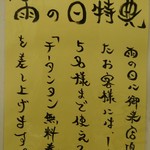 雨の日特典
雨の日に御来店頂い
たお客様には！
5名様まで使える
「チータンタン無料券」
を差し上げます。